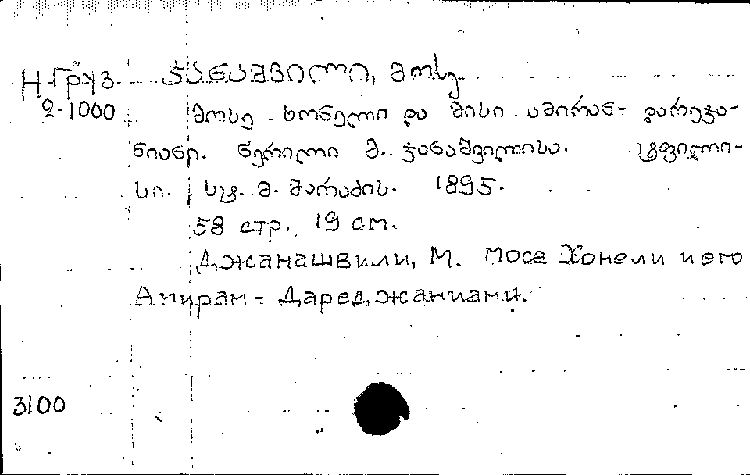 Н-Груз. ჯანაშვილი, მოსე.
2-1000 მოსე ხონელი და მისი ამირან-დარეჯა-
ნიანი. წერილი მ. ჯანაშვილისა. ტფილი-
სი. სტ. მ. შარაძის. 1895.
58 стр., 19 см.
Джанашвили, М. Мосе Хонели и его
Амиран-Дареджаниани.
3100